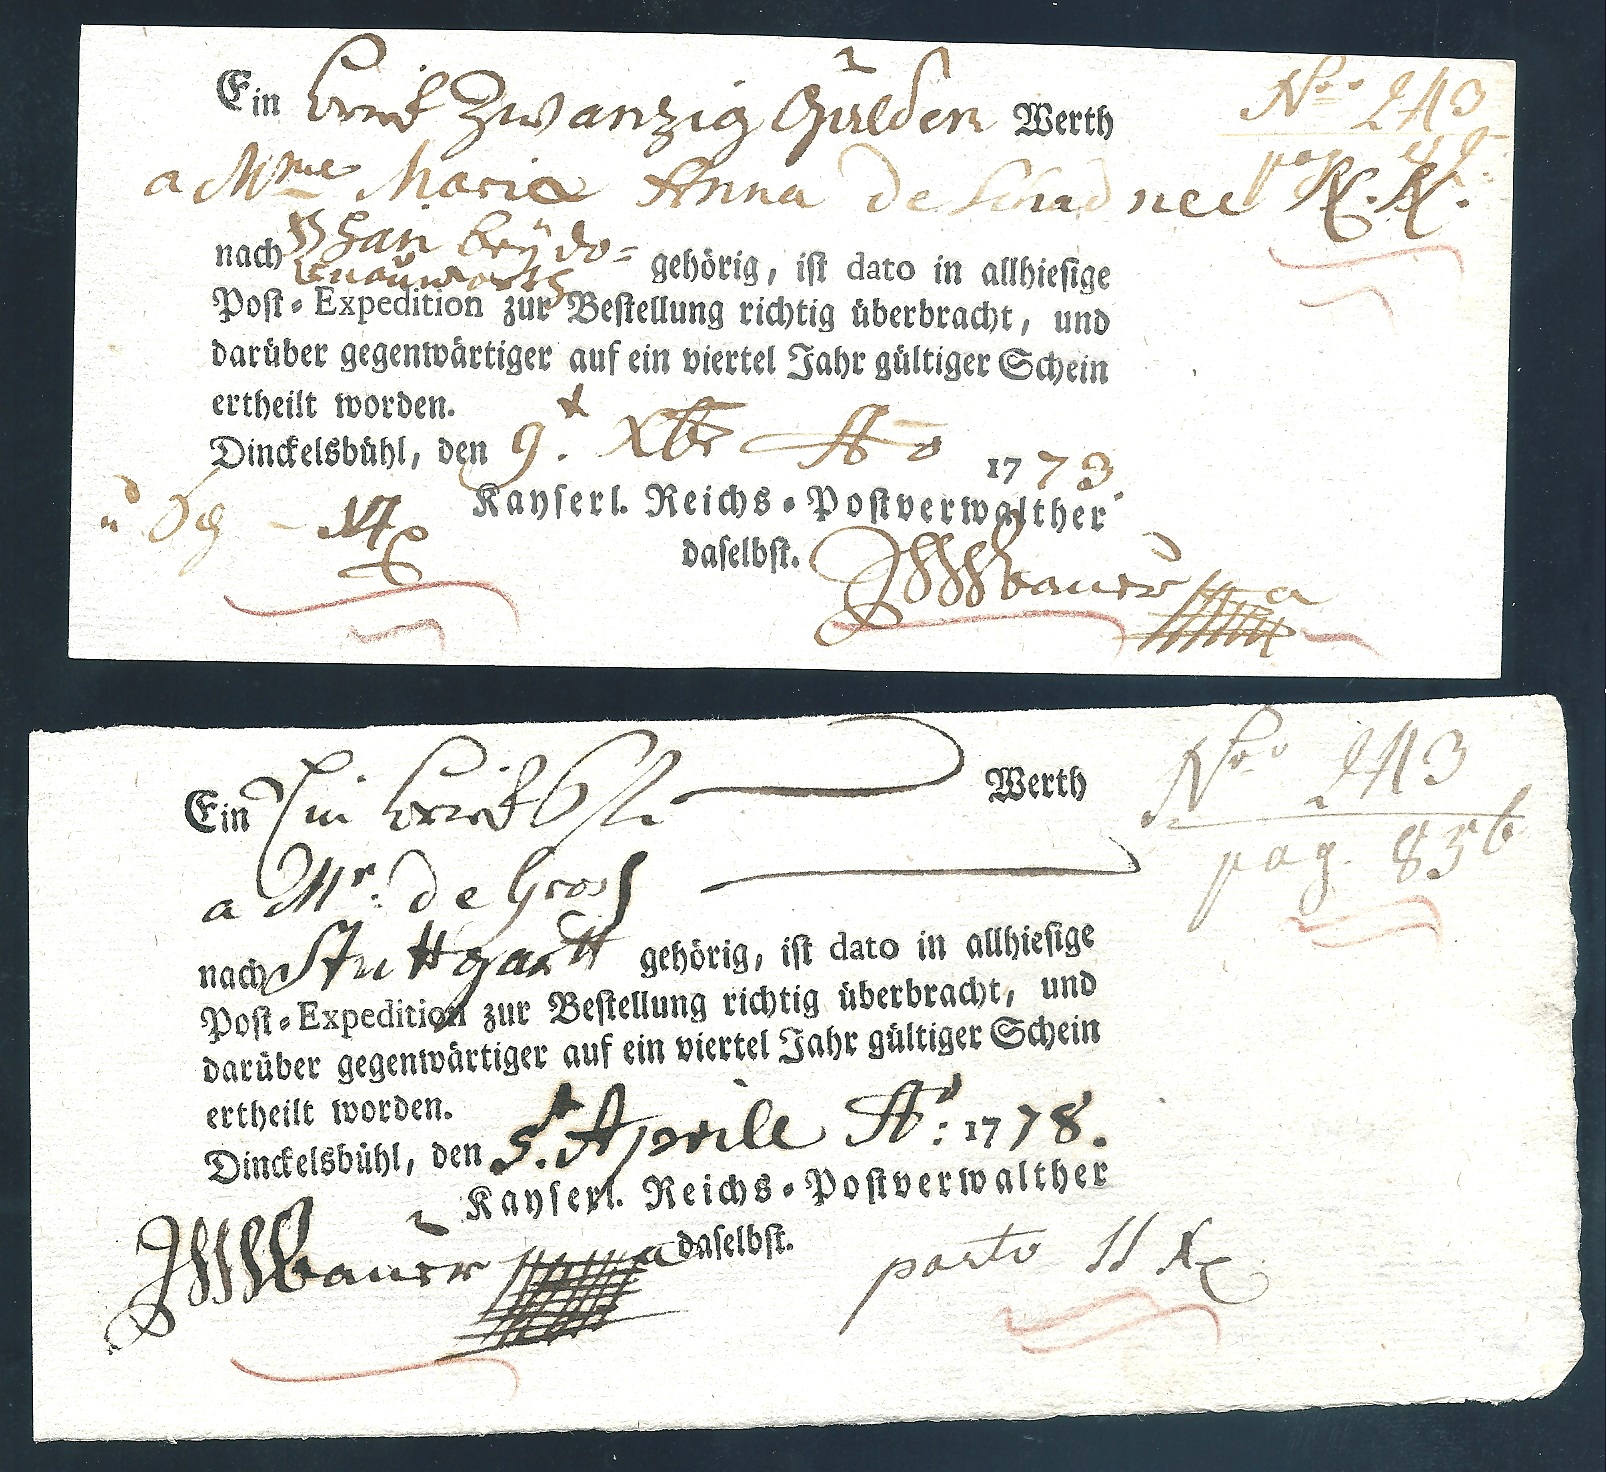 Ein brief Zwanzig Gulden Werth
Nro 243
a Mme Maria Anna de Schad nee
nach bey do=
nauwörth gehörig, ist dato in allhiesige
Post-Expedition zur Bestellung richtig überbracht, und
darüber gegenwärtiger auf ein viertel Jahr gültiger Schein
ertheilt worden.
Dinckelsbühl, den 9. Xbr Ao 1773
Kayserl. Reichs-Postverwalther
daselbst.
Ein brief Werth
Nro 243
pag. 856
a Mr. de Gross
nach Stuttgartt gehörig, ist dato in allhiesige
Post-Expedition zur Bestellung richtig überbracht, und
darüber gegenwärtiger auf ein viertel Jahr gültiger Schein
ertheilt worden.
Dinckelsbühl, den 5. Aprile Ao: 1778.
Kayserl. Reichs-Postverwalther
daselbst.
porto 11 x